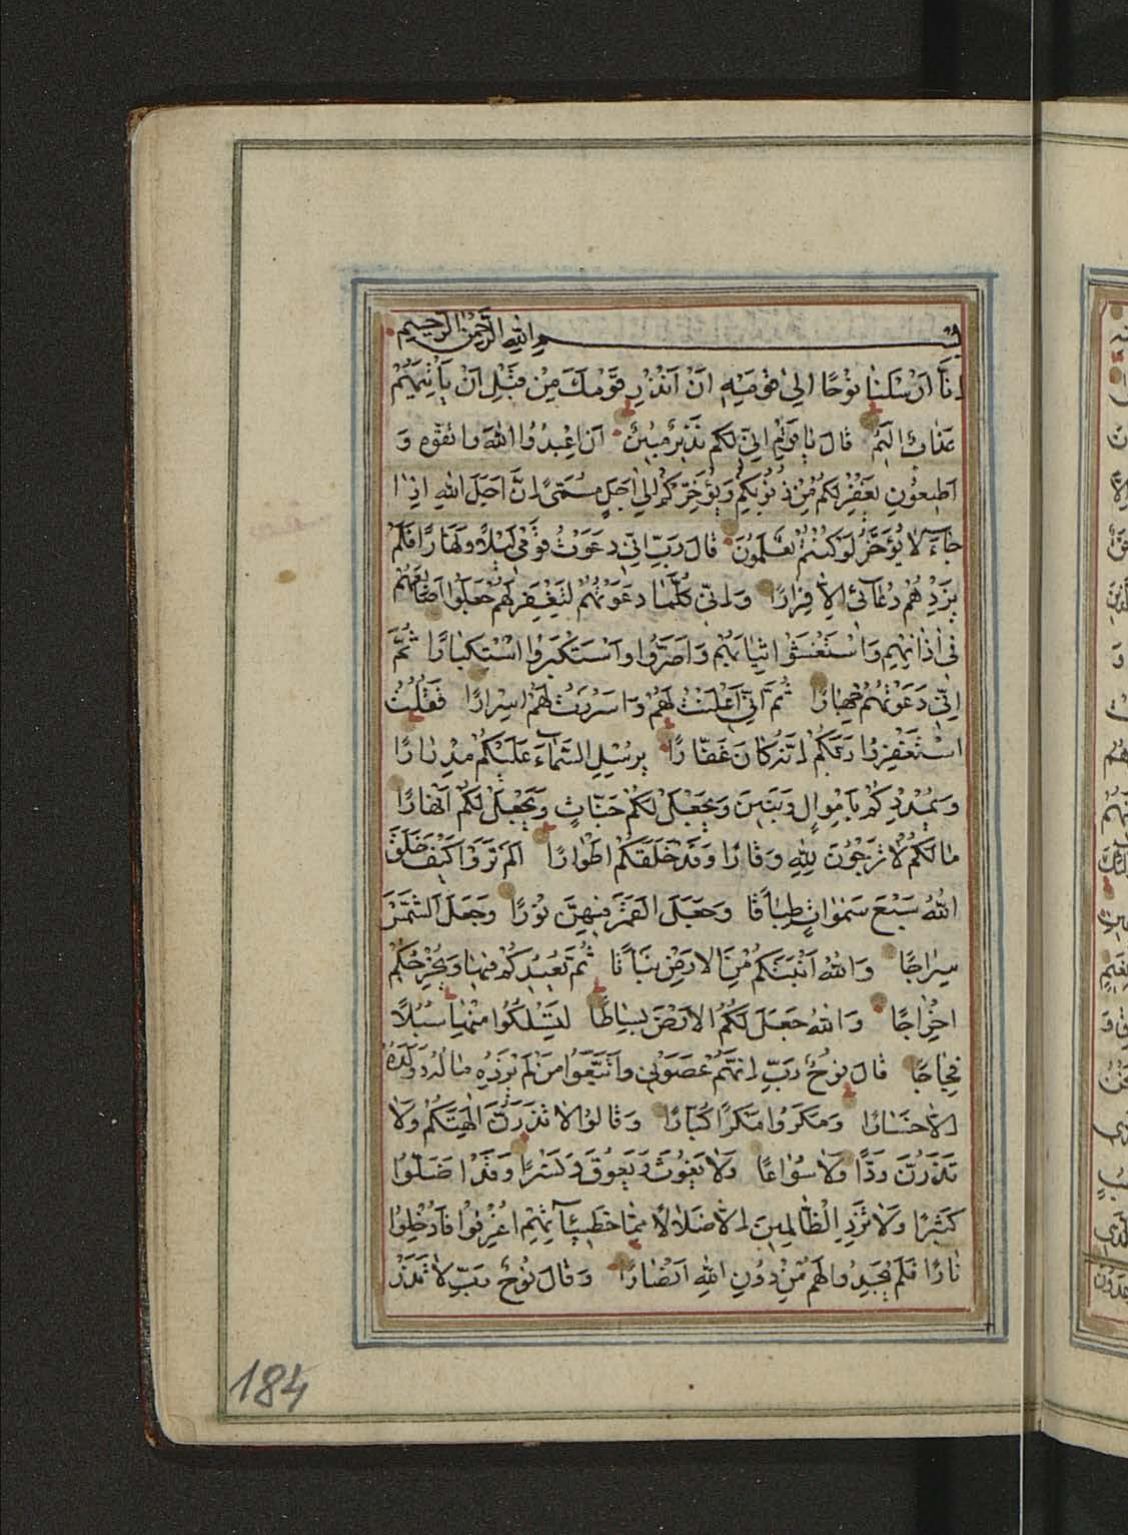 بسم الله الرحمن الرحيم
اِنَّا اَرْسَلْنَا نُوْحًا اِلىٰ قَوْمِهِ اَنْ اَنْذِرْ قَوْمَكَ مِنْ قَبْلِ اَنْ يَأْتِيَهُمْ
عَذَابٌ اَلِيمٌ قَالَ يَا قَوْمِ اِنِّي لَكُمْ نَذِيرٌ مُبِيْنٌ اَنِ اعْبُدُوا اللهَ وَاتَّقُوهُ وَ
اَطِيعُوْنِ يَغْفِرْ لَكُمْ مِنْ ذُنُوْبِكُمْ وَيُؤَخِّرْكُمْ اِلىٰ اَجَلٍ مُسَمًّى اِنَّ اَجَلَ اللهِ اِذَا
جَآءَ لَا يُؤَخَّرُ لَوْ كُنْتُمْ تَعْلَمُوْنَ قَالَ رَبِّ اِنِّي دَعَوْتُ قَوْمِي لَيْلًا وَنَهَارًا فَلَمْ
يَزِدْهُمْ دُعَآئِي اِلَّا فِرَارًا وَاِنِّي كُلَّمَا دَعَوْتُهُمْ لِتَغْفِرَ لَهُمْ جَعَلُوا اَصَابِعَهُمْ
فِي اٰذَانِهِمْ وَاسْتَغْشَوْا ثِيَابَهُمْ وَاَصَرُّوا وَاسْتَكْبَرُوا اسْتِكْبَارًا ثُمَّ
اِنِّي دَعَوْتُهُمْ جِهَارًا ثُمَّ اِنِّي اَعْلَنْتُ لَهُمْ وَاَسْرَرْتُ لَهُمْ اِسْرَارًا فَقُلْتُ
اسْتَغْفِرُوا رَبَّكُمْ اِنَّهُ كَانَ غَفَّارًا يُرْسِلِ السَّمَآءَ عَلَيْكُمْ مِدْرَارًا
وَيُمْدِدْكُمْ بِاَمْوَالٍ وَبَنِيْنَ وَيَجْعَلْ لَكُمْ جَنَّاتٍ وَيَجْعَلْ لَكُمْ اَنْهَارًا
مَا لَكُمْ لَا تَرْجُوْنَ لِلّٰهِ وَقَارًا وَقَدْ خَلَقَكُمْ اَطْوَارًا اَلَمْ تَرَوْا كَيْفَ خَلَقَ
اللهُ سَبْعَ سَمٰوَاتٍ طِبَاقًا وَجَعَلَ الْقَمَرَ فِيْهِنَّ نُوْرًا وَجَعَلَ الشَّمْسَ
سِرَاجًا وَاللهُ اَنْبَتَكُمْ مِنَ الْاَرْضِ نَبَاتًا ثُمَّ يُعِيْدُكُمْ فِيْهَا وَيُخْرِجُكُمْ
اِخْرَاجًا وَاللهُ جَعَلَ لَكُمُ الْاَرْضَ بِسَاطًا لِتَسْلُكُوا مِنْهَا سُبُلًا
فِجَاجًا قَالَ نُوْحٌ رَبِّ اِنَّهُمْ عَصَوْنِي وَاتَّبَعُوا مَنْ لَمْ يَزِدْهُ مَالُهُ وَوَلَدُهُ
اِلَّا خَسَارًا وَمَكَرُوا مَكْرًا كُبَّارًا وَقَالُوا لَا تَذَرُنَّ اٰلِهَتَكُمْ وَلَا
تَذَرُنَّ وَدًّا وَلَا سُوَاعًا وَلَا يَغُوْثَ وَيَعُوْقَ وَنَسْرًا وَقَدْ اَضَلُّوا
كَثِيْرًا وَلَا تَزِدِ الظَّالِمِيْنَ اِلَّا ضَلَالًا مِمَّا خَطِيْئَآتِهِمْ اُغْرِقُوا فَاُدْخِلُوا
نَارًا فَلَمْ يَجِدُوا لَهُمْ مِنْ دُونِ اللهِ اَنْصَارًا وَقَالَ نُوْحٌ رَبِّ لَا تَذَرْ
184